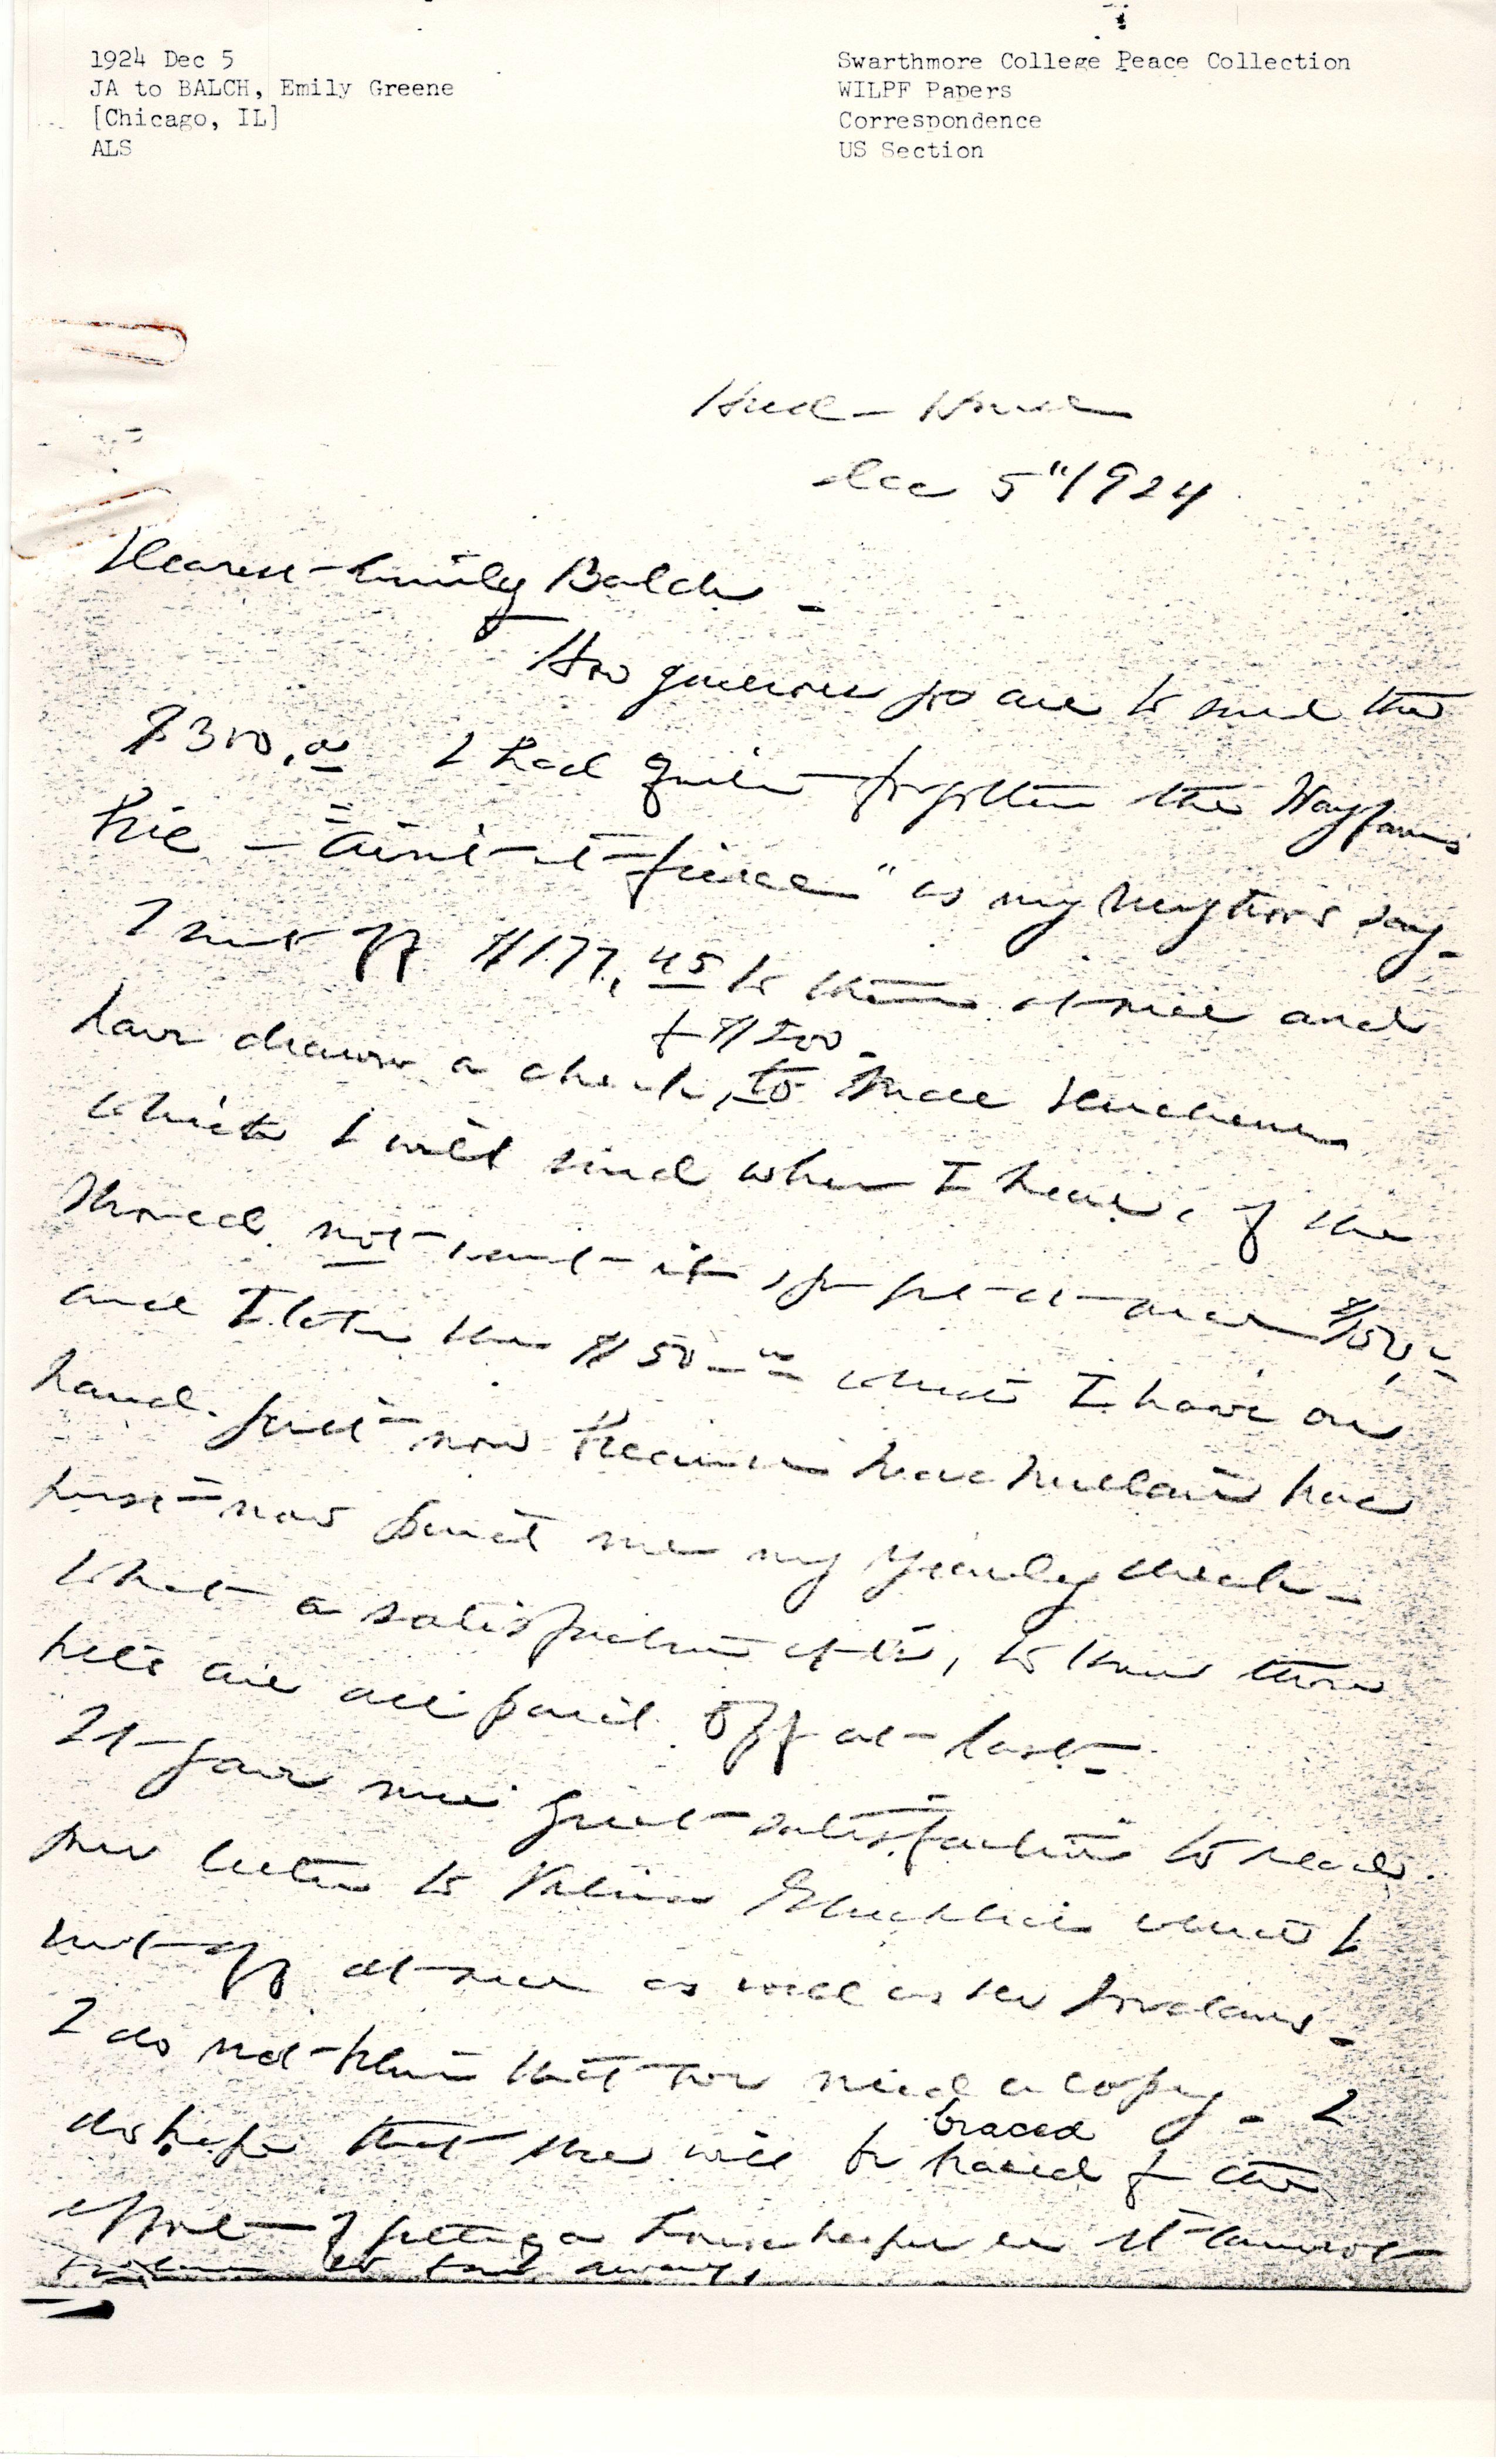 1924 Dec 5
JA to BALCH, Emily Greene
[Chicago, IL]
ALS
Swarthmore College Peace Collection
WILPF Papers
Correspondence
US Section
Hull-House
Dec 5" 1924
Dearest Emily Balch -
How generous you are to send the
$300.00 I had quite forgotten the
"ain't it fierce" as my neighbors say -
I sent off $177.45 to them at once and
have drawn a check, to
for $200.
which I will send when I hear, if she
should not want it
and I later the $50.00 which I have on
hand just now because
just now sent me my yearly check -
What a satisfaction it is, to know those
bills are all paid off at last -
It gave me great satisfaction to read
your letter to Vilma Glücklich which I
sent off at once as well as the
I do not think that you need a copy - I
do hope that she will be braced for the
braced
effort of getting a housekeeper